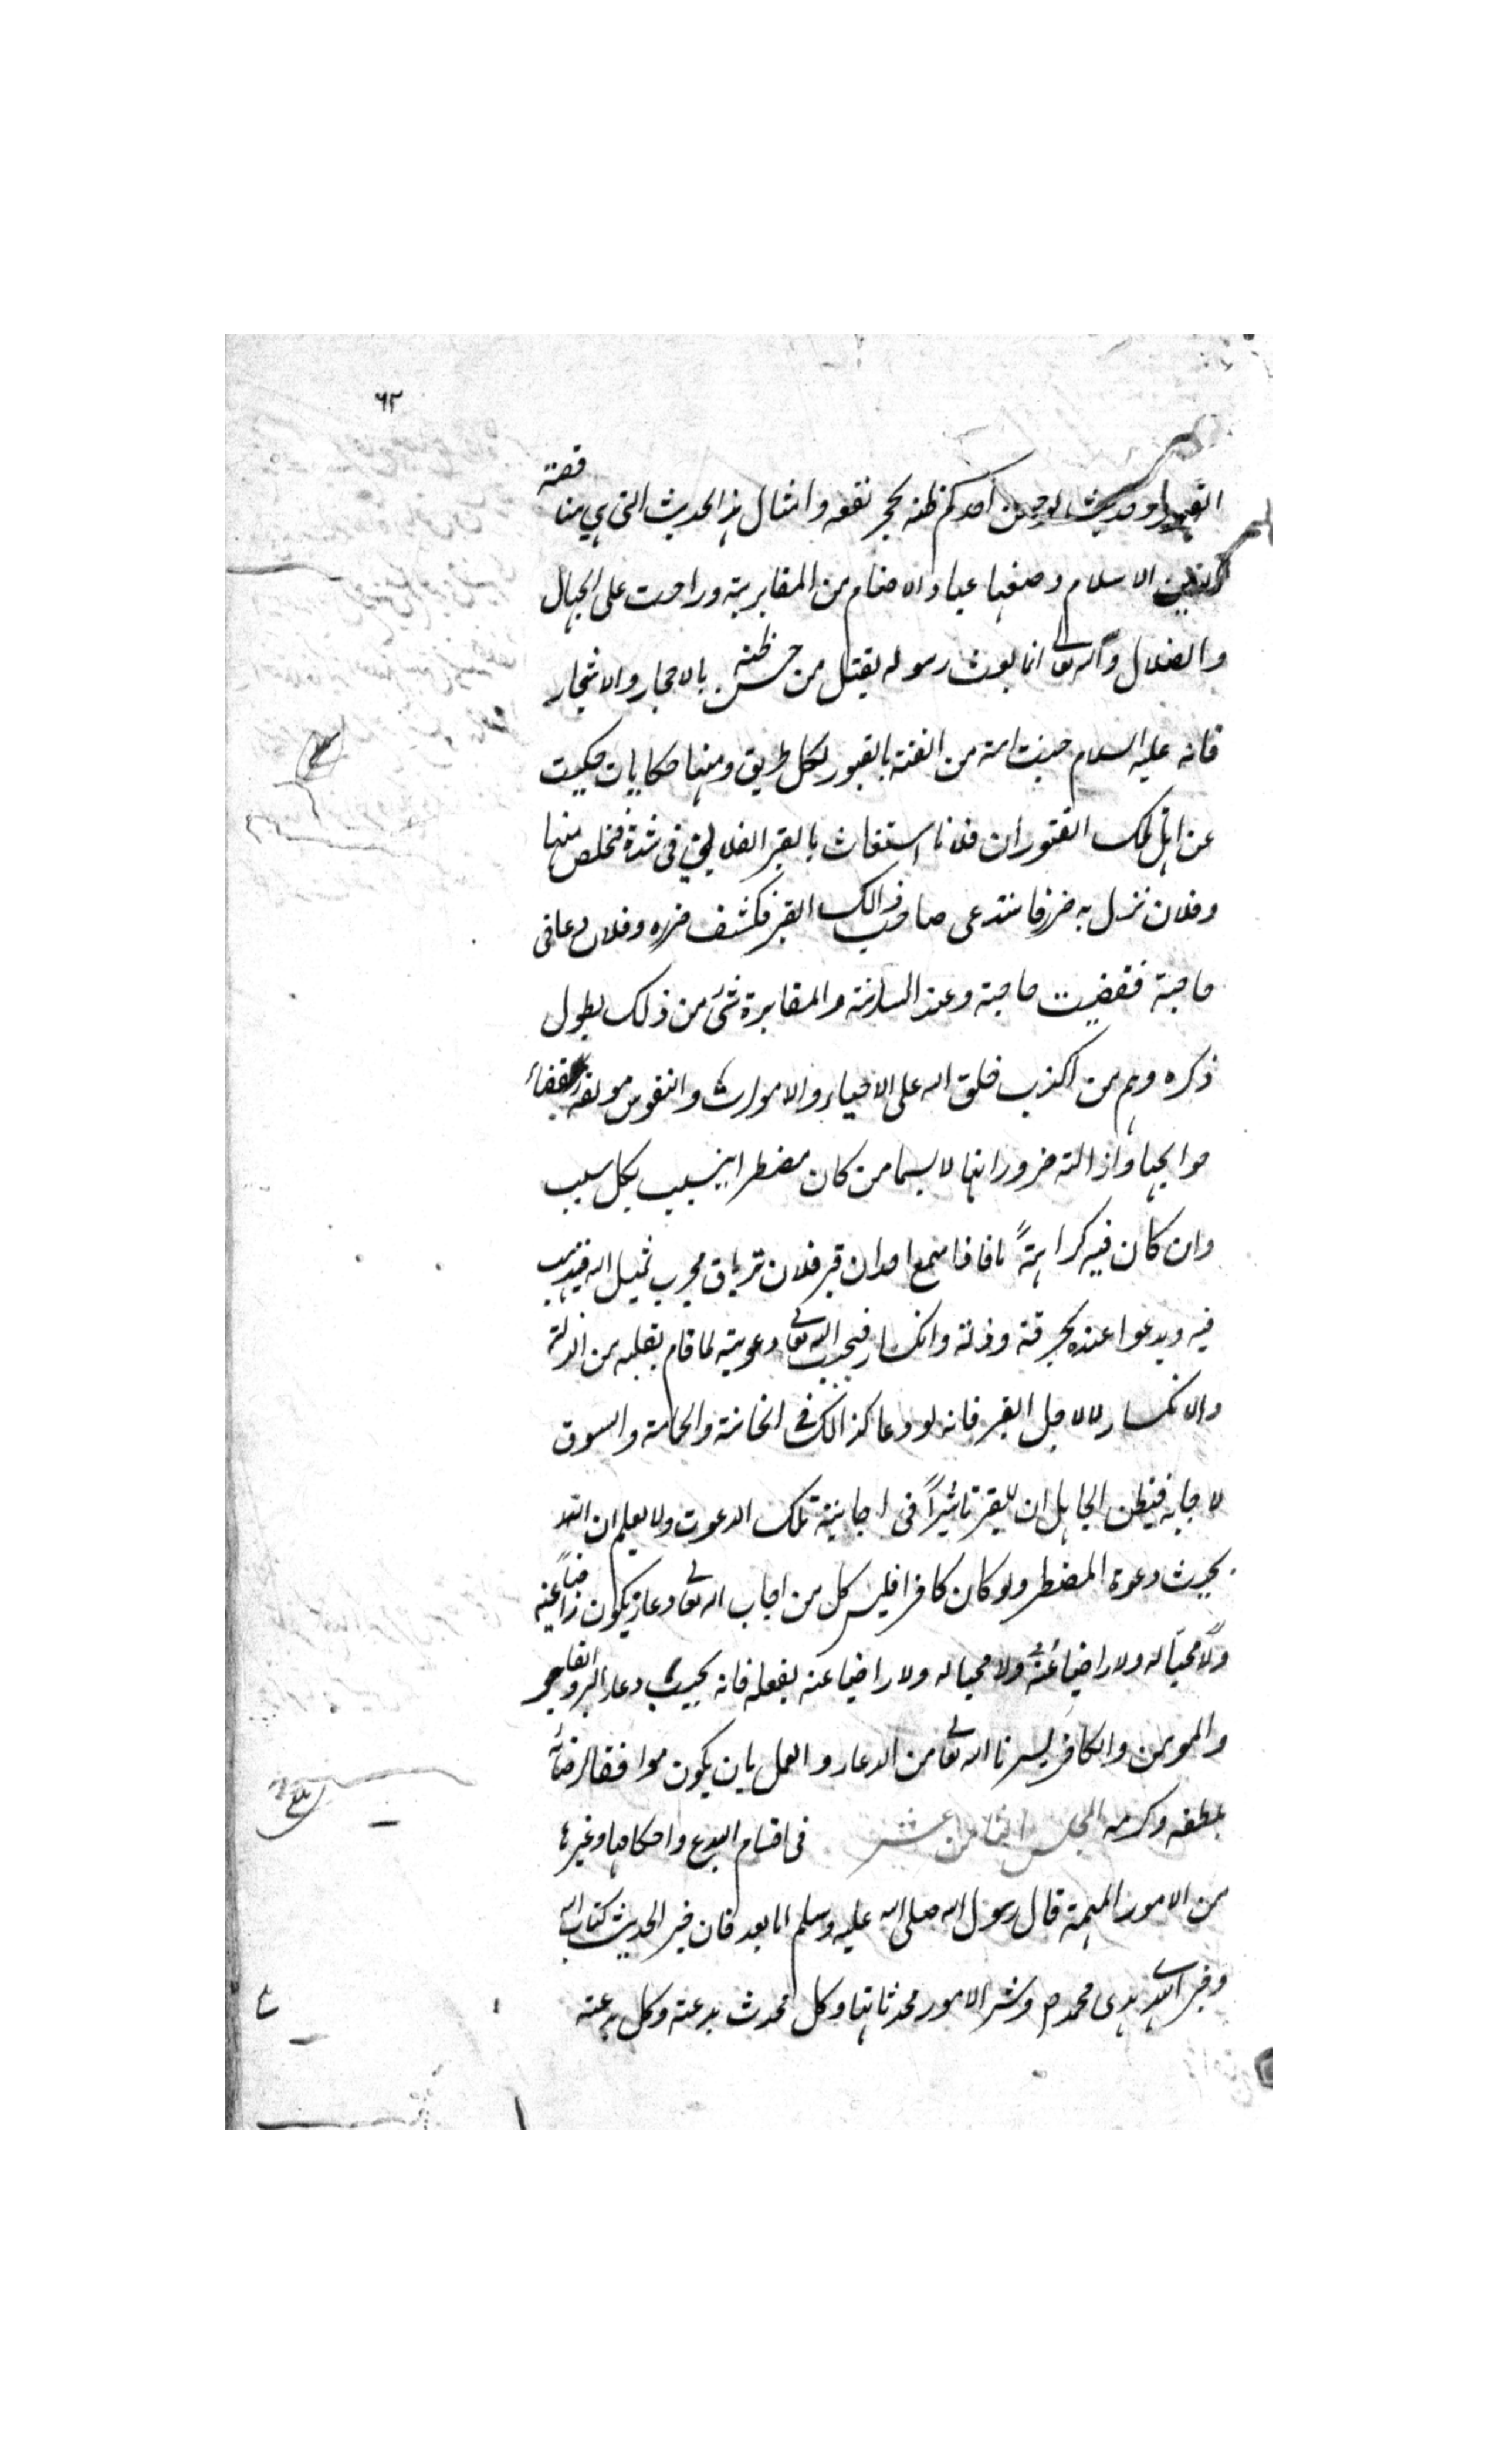 ٦٢
القبور وحديث لو حسن احدكم ظنه بحجر نفعه وامثال هذا الحديث التى هي مناقضة
لدين الاسلام وضعها عباد الاصنام من المقابرية وراحت على الجهال
والضلال والله تعالى انما بعث رسوله يقتل من حسن ظنه بالاحجار والاشجار
فانه عليه السلام جنب امته من الفتنة بالقبور بكل طريق ومنها حكايات حكيت
عن اهل تلك القبور ان فلانا استغاث بالقبر الفلاني في شدة فخلص منها
وفلان نزل به ضر فاستدعى صاحب ذالك القبر فكشف ضره وفلان دعا في
حاجة فقضيت حاجته وعند السادنة والمقابرة شئ من ذلك يطول
ذكره وهم من اكذب خلق الله على الاحياء والاموات والنفوس مولعة بقضاء
حوايجها وازالته ضروراتها لا سيما من كان مضطرا يتسبب بكل سبب
وان كان فيه كراهةً ما فاذا سمع احد ان قبر فلان ترياق مجرب تميل اليه فيذهب
فيه ويدعوا عنده بحرقة وذلة وانكسار فيجيب الله تعالى دعوته لما قام بقلبه من الذلة
والانكسار لا لاجل القبر فانه لو دعا كذالك في الخانة والحمامة والسوق
لاجابه فيظن الجاهل ان للقبر تاثيراً في اجابة تلك الدعوت ولا يعلم ان الله
يجيب دعوة المضطر ولو كان كافرا فليس كل من اجاب الله تعالى دعاء يكون راضياً عنه
ولا محبا له ولا راضيا عنه ولا محبا له ولا راضيا عنه بفعله فانه يجيب دعاء البر والفاجر
والمومن والكافر يسرنا الله تعالى من الدعاء والعمل بان يكون موافقا لرضائه
بلطفه وكرمه المجلس الثامن عشر في اقسام البدع واحكامها وغيرها
من الامور المهمة قال رسول الله صلى الله عليه وسلم اما بعد فان خير الحديث كتاب الله
وخير الهدى هدى محمد ص وشر الامور محدثاتها وكل محدث بدعة وكل بدعة